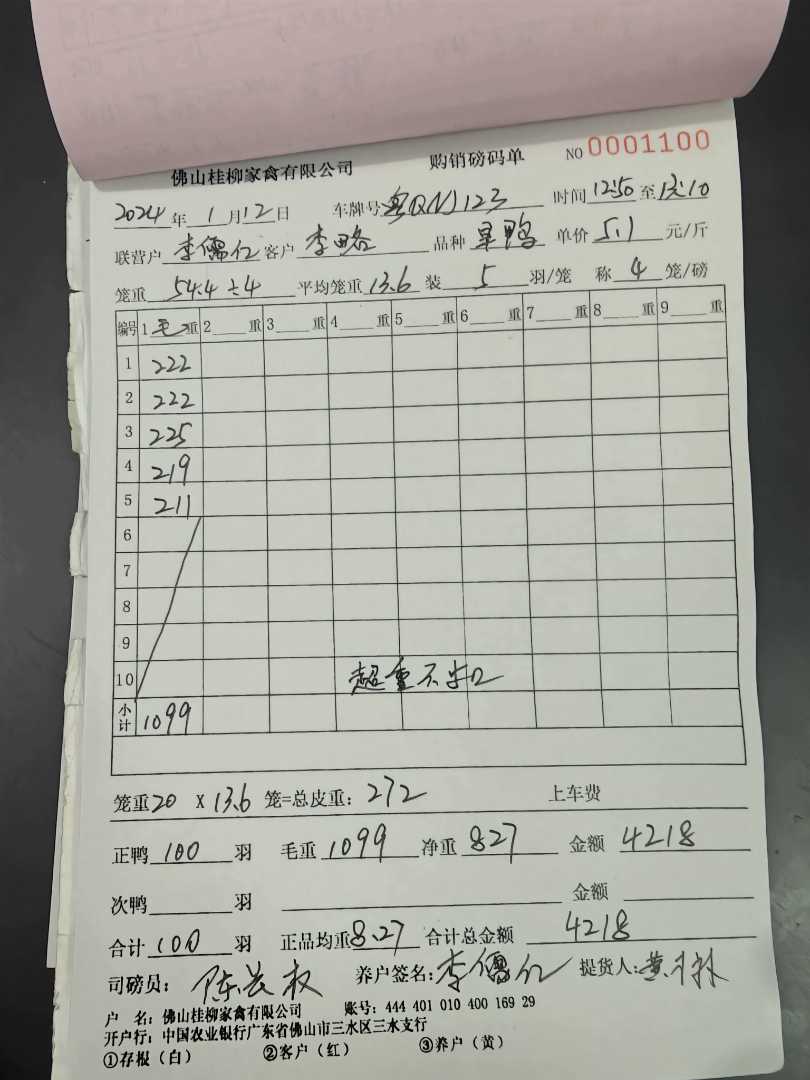 佛山桂柳家禽有限公司 购销磅码单 NO 0001100
2024年 1月12日 车牌号粤QNJ123 时间12:50至13:10
联营户李儒仁客户李略 品种旱鸭 单价5.1元/斤
笼重54.4÷4 平均笼重13.6 装5羽/笼 称4笼/磅
编号 1毛重 2重 3重 4重 5重 6重 7重 8重 9重
1 222
2 222
3 225
4 219
5 211
6
7
8
9
10 超重不扣
小计 1099
笼重20 X 13.6 笼=总皮重：272 上车费
正鸭100羽 毛重1099净重827 金额4218
次鸭羽 金额
合计100羽 正品均重8.27 合计总金额4218
司磅员：陈 权 养户签名:李儒仁 提货人:黄
户 名：佛山桂柳家禽有限公司 账号：444 401 010 400 169 29
开户行：中国农业银行广东省佛山市三水区三水支行
①存报（白） ②客户（红） ③养户（黄）